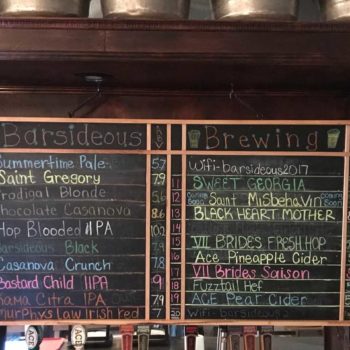 Barsideous Brewing
Summertime Pale 5.7
Saint Gregory 7.9
Prodigal Blonde 5.6
Chocolate Casanova 8.6
Hop Blooded IIPA 10.2
Barsideous Black 7.9
Casanova Crunch 7.8
Bastard Child IIPA 9
Bahama Citra IPA 7.9
Murphys Law Irish red 7
Wifi-barsideous2017
11 SWEET GEORGIA
12 Coming Soon Saint MisbehaVin Coming Soon
13 BLACK HEART MOTHER
14
15 VII BRIDES FRESH HOP
16 Ace Pineapple Cider
17 VII Brides Saison
18 Fuzztail Hef
19 ACE Pear Cider
20